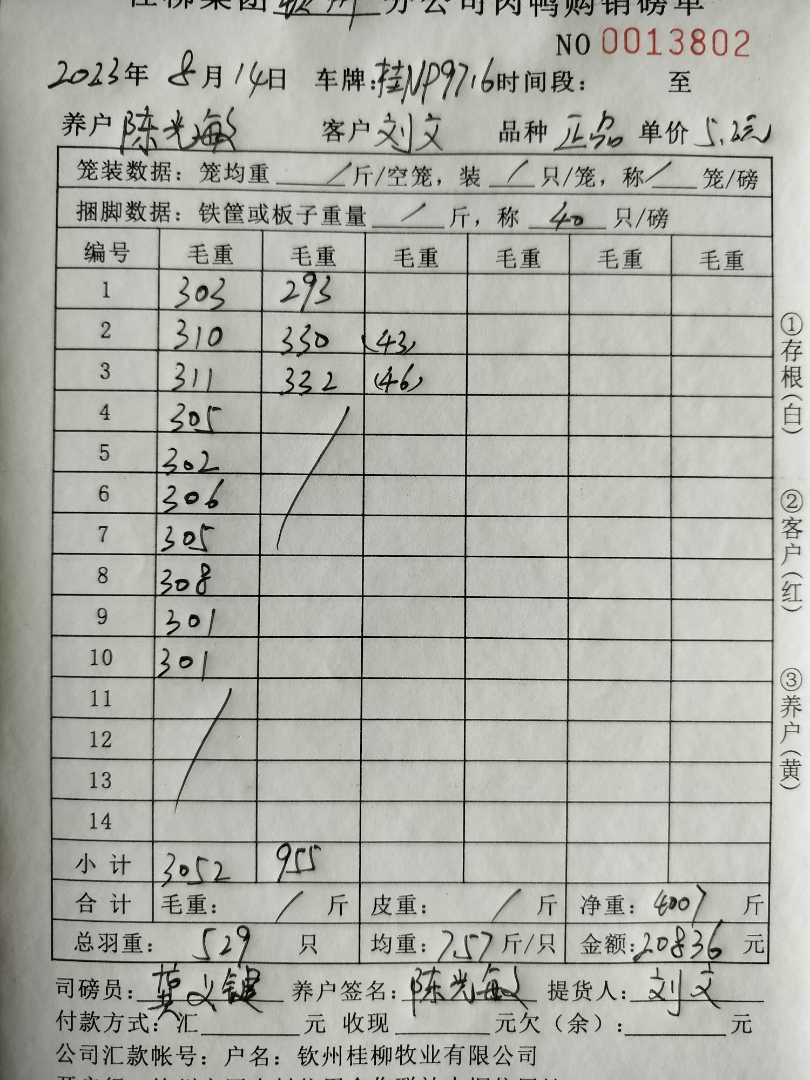 桂柳集团钦州分公司肉鸭购销磅单
NO 0013802
2023年 8月14日 车牌:桂NP9716 时间段: 至
养户 陈光敏 客户 刘文 品种 正品 单价 5.2元
笼装数据: 笼均重 / 斤/空笼, 装 / 只/笼, 称 / 笼/磅
捆脚数据: 铁筐或板子重量 / 斤, 称 40 只/磅
编号 毛重 毛重 毛重 毛重 毛重 毛重
1 303 293
2 310 330 (43)
3 311 332 (46)
4 305
5 302
6 306
7 305
8 308
9 301
10 301
11
12
13
14
小计 3052 955
合计 毛重: / 斤 皮重: / 斤 净重: 4007 斤
总羽重: 529 只 均重: 7.57 斤/只 金额: 20836 元
司磅员: 莫义 养户签名: 陈光敏 提货人: 刘文
付款方式: 汇 元 收现 元欠(余): 元
公司汇款帐号: 户名: 钦州桂柳牧业有限公司
①存根(白)
②客户(红)
③养户(黄)